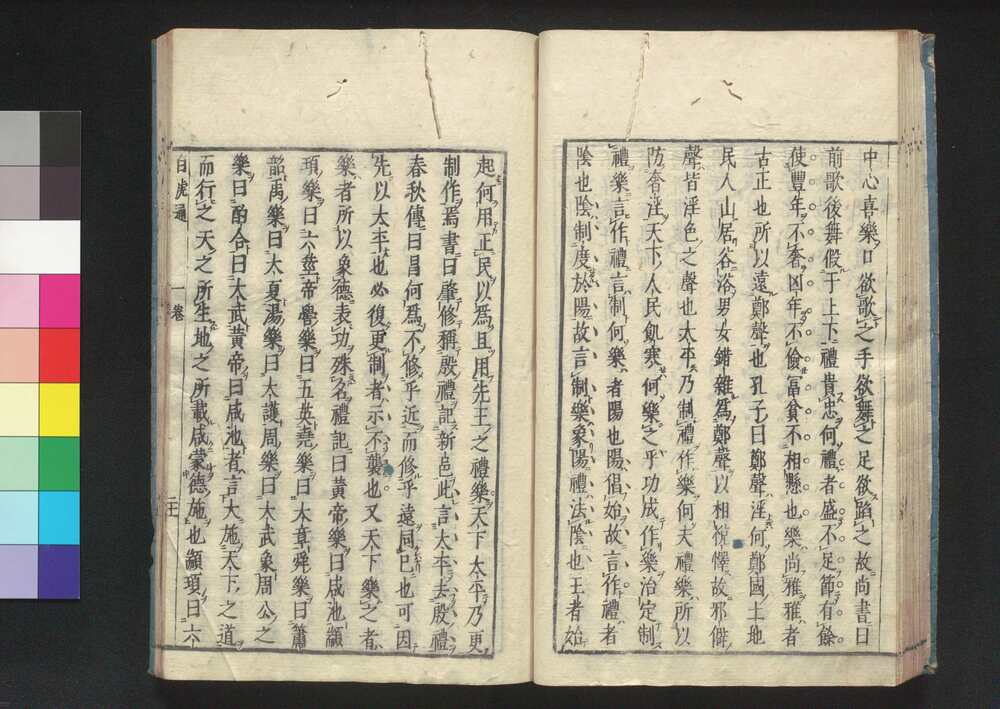 中心喜樂口欲歌之手欲舞之足欲蹈之故尚書曰
前歌後舞假于上下禮貴忠何禮者盛不足節有餘
使豐年不奢凶年不儉富貧不相懸也樂尚雅雅者
古正也所以遠鄭聲也孔子曰鄭聲淫何鄭國土地
民人山居谷浴男女錯雜爲鄭聲以相悅懌故邪僻
聲皆淫色之聲也太平乃制禮作樂何夫禮樂所以
防奢淫天下人民飢寒何樂之乎功成作樂治定制
禮樂言作禮言制何樂者陽也陽倡始故言作禮者
陰也陰制度於陽故言制樂象陽禮法陰也王者始
起何用正民以爲且用先王之禮樂天下太平乃更
制作焉書曰肇修稱殷禮記新邑此言太平去殷禮
春秋傳曰昌何爲不修乎近而修乎遠同已也可因
先以太平也必復更制者示不襲也又天下樂之者
樂者所以象德表功殊名禮記曰黃帝樂曰咸池顓
頊樂曰六莖帝嚳樂曰五英堯樂曰大章舜樂曰簫
韶禹樂曰大夏湯樂曰大護周樂曰大武象周公之
樂曰酌合曰大武黃帝曰咸池者言大施天下之道
而行之天之所生地之所載咸蒙德施也顓頊曰六
白虎通 一卷